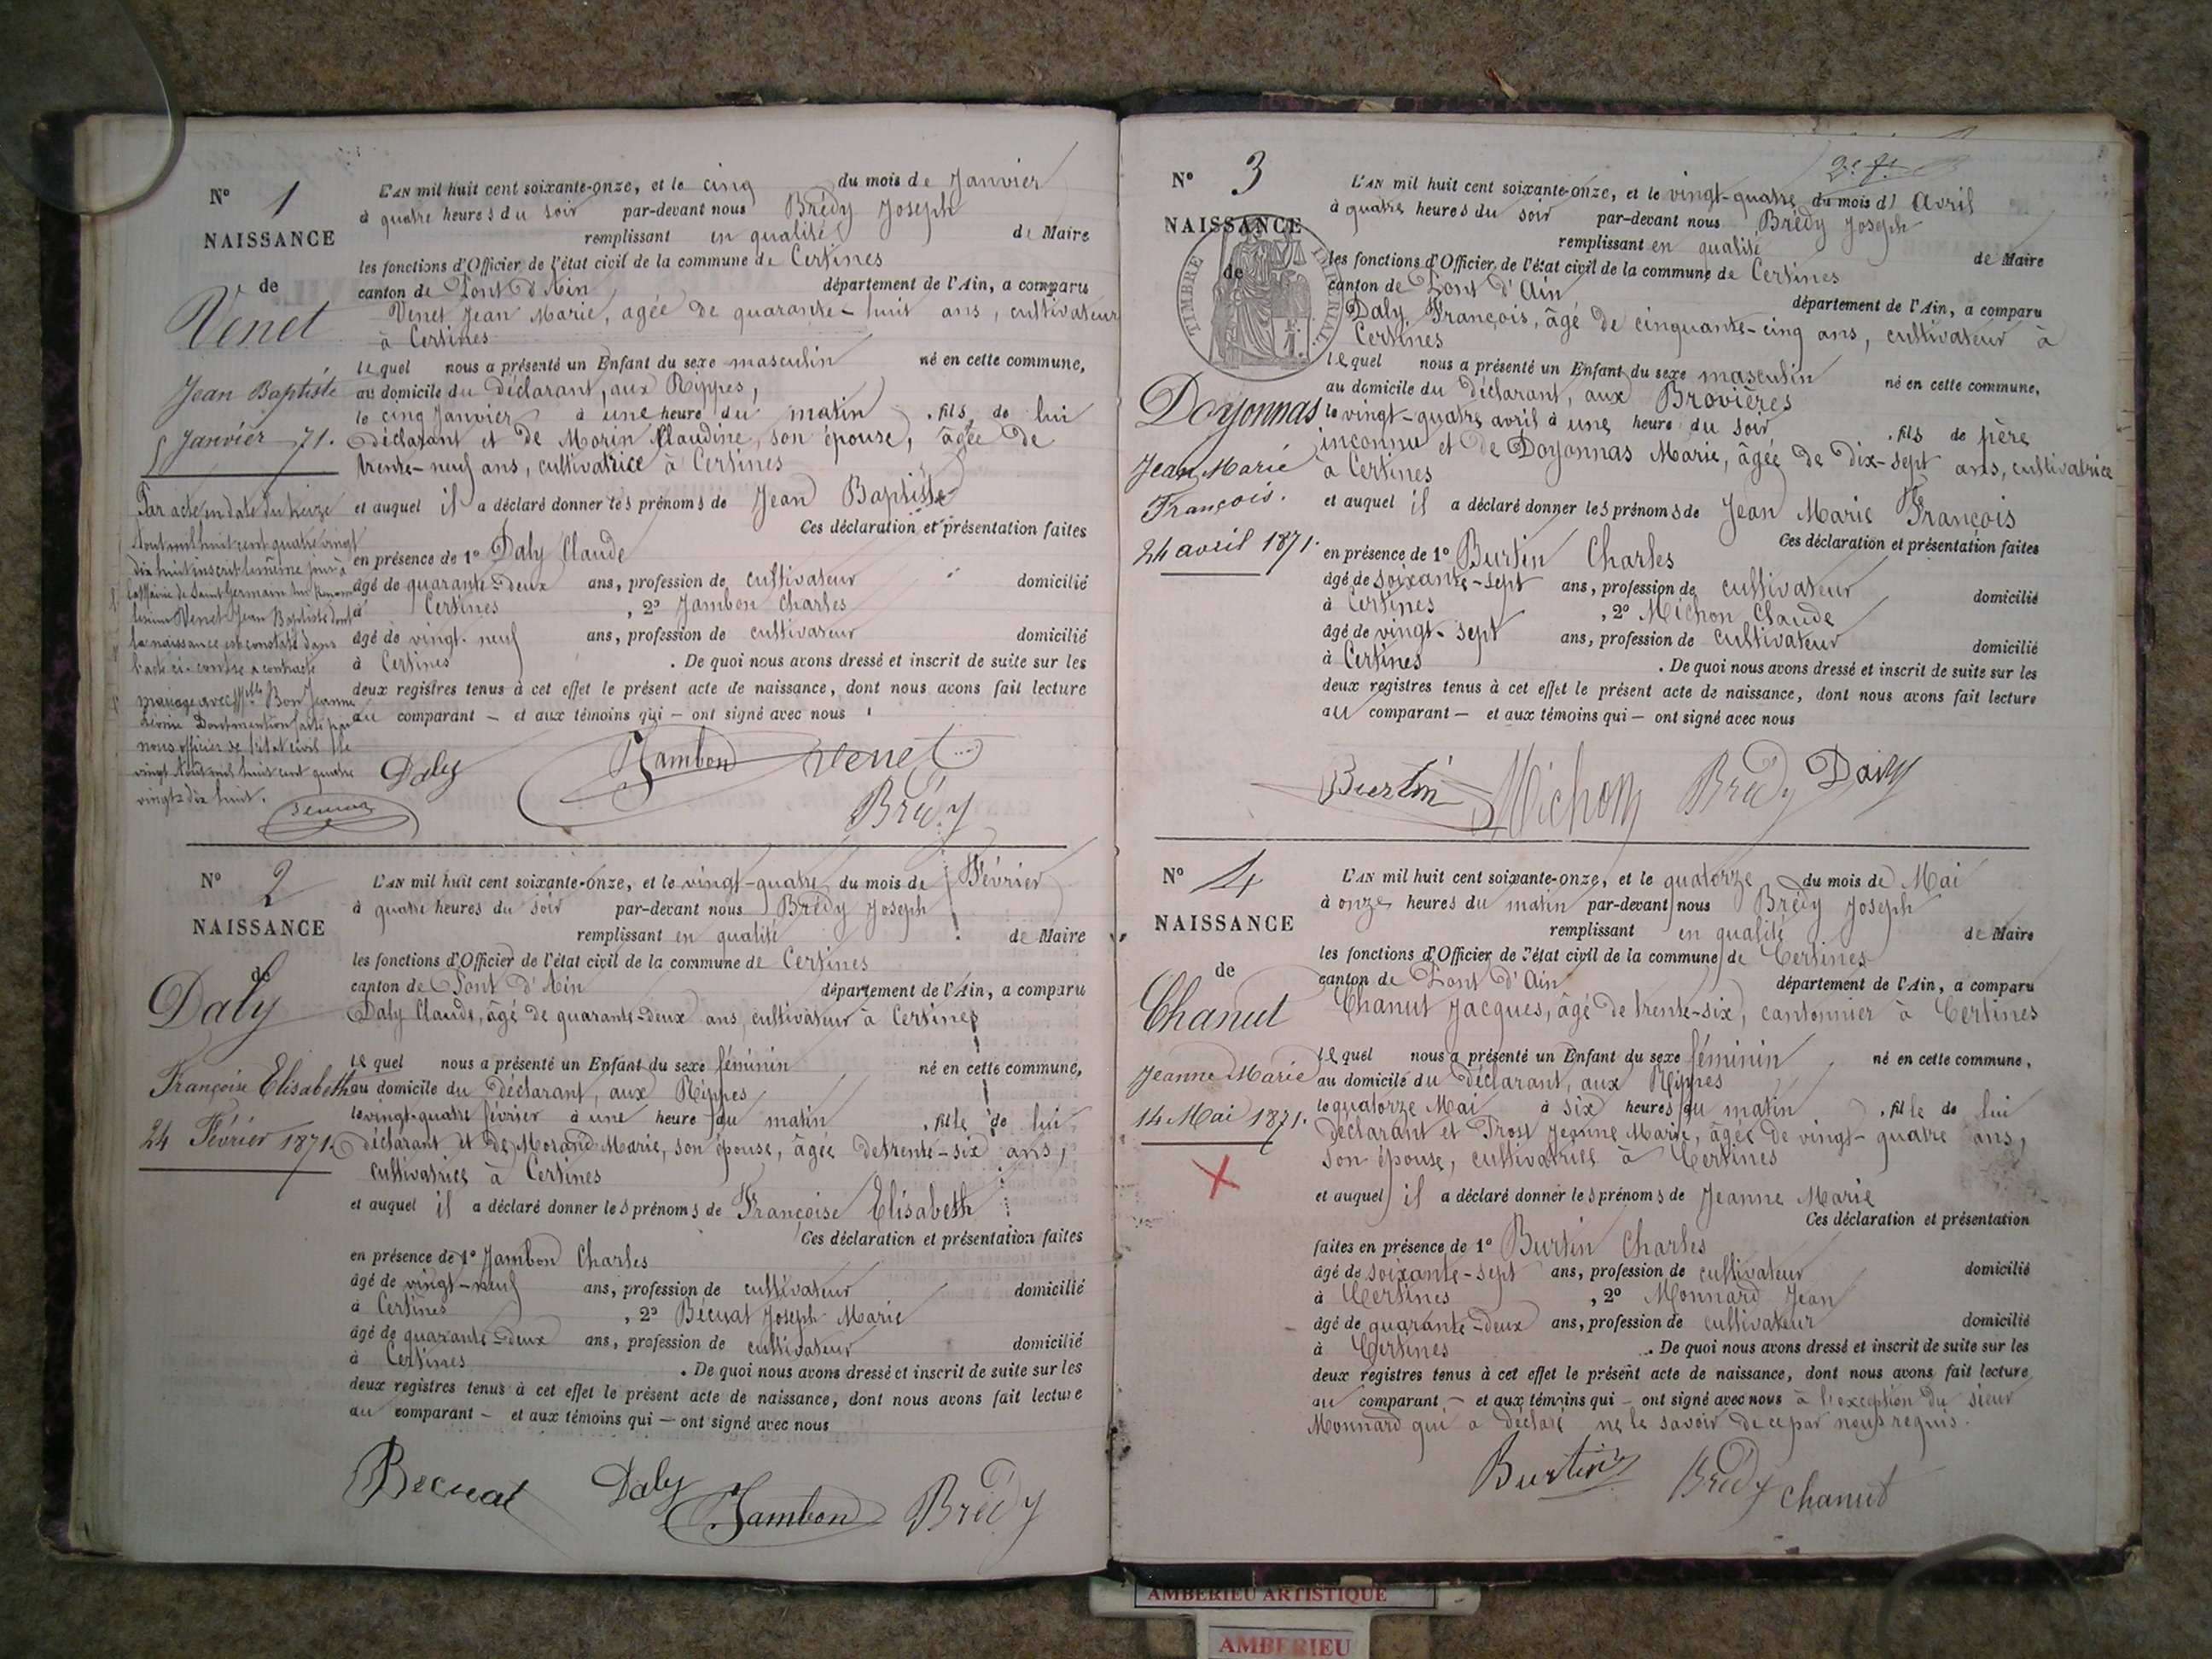 N° 1
NAISSANCE
de
Venet
Jean Baptiste
5 Janvier 71.
Par acte en date du treize
Aout mil huit cent quatre vingt
dix huit inscrit le même jour à
la Mairie de Saint Germain
Venet Jean Baptiste dont
la naissance est constaté dans
l'acte ci-contre a contracté
mariage avec Mlle Bon Jeanne
Dont mention faite par
nous officier de l'état civil le
vingt Aout mil huit cent quatre
vingt dix huit.
L'AN mil huit cent soixante-onze, et le cinq du mois de Janvier
à quatre heures du soir par-devant nous Brédy Joseph
remplissant en qualité de Maire
les fonctions d'Officier de l'état civil de la commune de Certines
canton de Pont d'Ain département de l'Ain, a comparu
Venet Jean Marie, agée de quarante-huit ans, cultivateur
à Certines
lequel nous a présenté un Enfant du sexe masculin né en cette commune,
au domicile du déclarant, aux Rippes,
le cinq Janvier à une heure du matin, fils de lui
déclarant et de Morin Claudine, son épouse, âgée de
trente-neuf ans, cultivatrice à Certines
et auquel il a déclaré donner les prénoms de Jean Baptiste
Ces déclaration et présentation faites
en présence de 1° Daly Claude
âgé de quarante-deux ans, profession de cultivateur domicilié
à Certines, 2° Jambon Charles
âgé de vingt-neuf ans, profession de cultivateur domicilié
à Certines. De quoi nous avons dressé et inscrit de suite sur les
deux registres tenus à cet effet le présent acte de naissance, dont nous avons fait lecture
au comparant – et aux témoins qui – ont signé avec nous
Daly Jambon Venet
Brédy
N° 2
NAISSANCE
de
Daly
Françoise Elisabeth
24 Février 1871.
L'AN mil huit cent soixante-onze, et le vingt-quatre du mois de Février
à quatre heures du soir par-devant nous Brédy Joseph
remplissant en qualité de Maire
les fonctions d'Officier de l'état civil de la commune de Certines
canton de Pont d'Ain département de l'Ain, a comparu
Daly Claude, âgé de quarante-deux ans, cultivateur à Certines
lequel nous a présenté un Enfant du sexe féminin né en cette commune,
au domicile du déclarant, aux Rippes
le vingt-quatre février à une heure du matin, fille de lui
déclarant et de Morand Marie, son épouse, âgée de trente-six ans,
cultivatrice à Certines
et auquel il a déclaré donner les prénoms de Françoise Elisabeth
Ces déclaration et présentation faites
en présence de 1° Jambon Charles
âgé de vingt-neuf ans, profession de cultivateur domicilié
à Certines, 2° Bécuat Joseph-Marie
âgé de quarante-deux ans, profession de cultivateur domicilié
à Certines. De quoi nous avons dressé et inscrit de suite sur les
deux registres tenus à cet effet le présent acte de naissance, dont nous avons fait lecture
au comparant – et aux témoins qui – ont signé avec nous
Becuat Daly Jambon Brédy
N° 3
NAISSANCE
de
TIMBRE IMPERIAL.
Doyonnas
Jean Marie
François.
24 avril 1871.
L'AN mil huit cent soixante-onze, et le vingt-quatre du mois d'Avril
à quatre heures du soir par-devant nous Brédy Joseph
remplissant en qualité de Maire
les fonctions d'Officier de l'état civil de la commune de Certines
canton de Pont d'Ain département de l'Ain, a comparu
Daly, François, âgé de cinquante-cinq ans, cultivateur à
Certines
lequel nous a présenté un Enfant du sexe masculin né en cette commune,
au domicile du déclarant, aux Brovières
le vingt-quatre avril à une heure du soir, fils de père
inconnu et de Doyonnas Marie, âgée de dix-sept ans, cultivatrice
à Certines
et auquel il a déclaré donner les prénoms de Jean Marie François
Ces déclaration et présentation faites
en présence de 1° Burtin Charles
âgé de soixante-sept ans, profession de cultivateur domicilié
à Certines, 2° Michon Claude
âgé de vingt-sept ans, profession de cultivateur domicilié
à Certines. De quoi nous avons dressé et inscrit de suite sur les
deux registres tenus à cet effet le présent acte de naissance, dont nous avons fait lecture
au comparant – et aux témoins qui – ont signé avec nous
Burtin Michon Brédy Daly
N° 4
NAISSANCE
de
Chanut
Jeanne Marie
14 Mai 1871.
L'AN mil huit cent soixante-onze, et le quatorze du mois de Mai
à onze heures du matin par-devant nous Brédy Joseph
remplissant en qualité de Maire
les fonctions d'Officier de l'état civil de la commune de Certines
canton de Pont d'Ain département de l'Ain, a comparu
Chanut Jacques, âgé de trente-six, cantonnier à Certines
lequel nous a présenté un Enfant du sexe féminin né en cette commune,
au domicile du déclarant, aux Rippes
le quatorze Mai à six heures du matin, fille de lui
déclarant et Prost Jeanne Marie, âgée de vingt-quatre ans,
son épouse, cultivatrice à Certines
et auquel il a déclaré donner les prénoms de Jeanne Marie
Ces déclaration et présentation
faites en présence de 1° Burtin Charles
âgé de soixante-sept ans, profession de cultivateur domicilié
à Certines, 2° Monnard Jean
âgé de quarante-deux ans, profession de cultivateur domicilié
à Certines. De quoi nous avons dressé et inscrit de suite sur les
deux registres tenus à cet effet le présent acte de naissance, dont nous avons fait lecture
au comparant – et aux témoins qui – ont signé avec nous à l'exception du sieur
Monnard qui a déclaré ne le savoir de ce par nous requis.
Burtin Brédy Chanut
AMBERIEU ARTISTIQUE
AMBERIEU